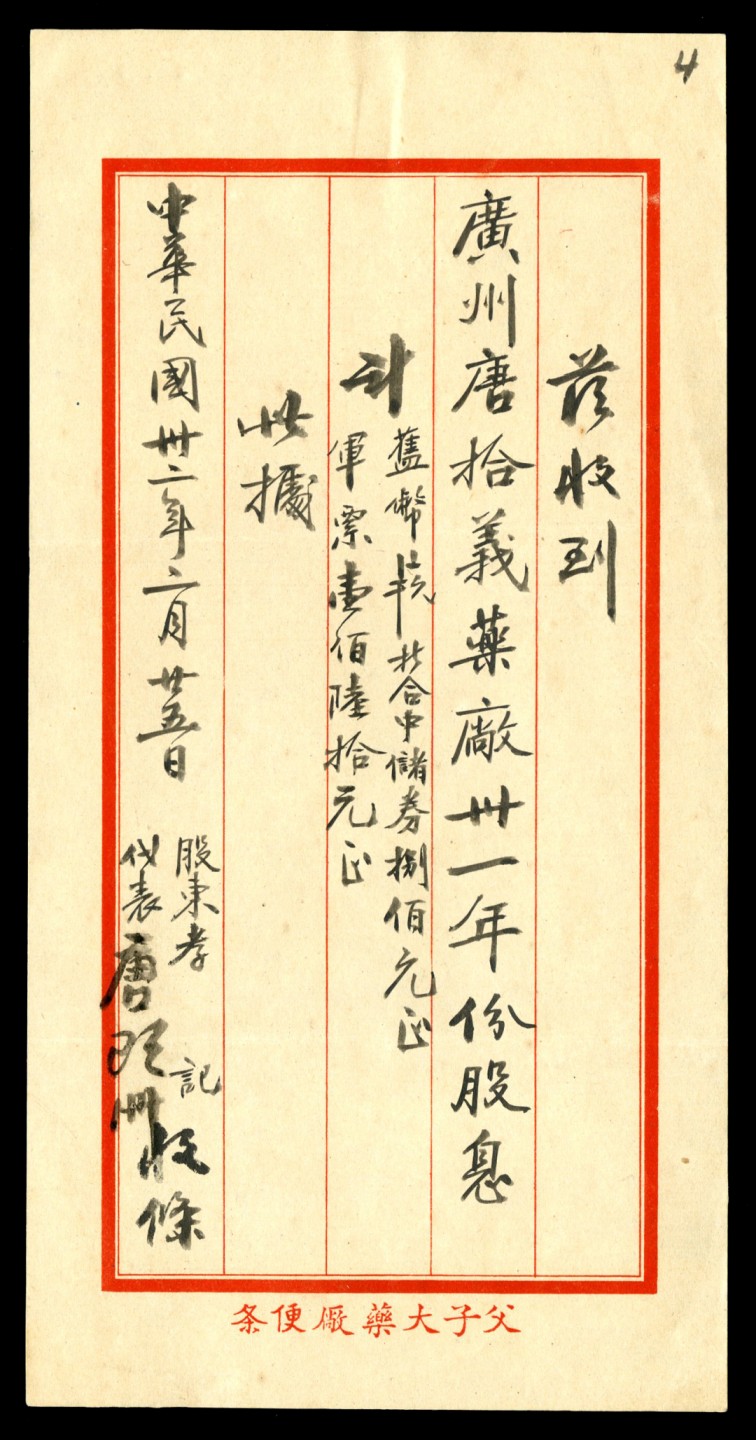 4
茲收到
廣州唐拾義藥廠卅一年份股息
計
舊幣 折合中儲券捌佰元正
軍票壹佰陸拾元正
此據
中華民國卅二年二月廿五日
股東孝記
代表唐 州收條
父子大藥廠便条